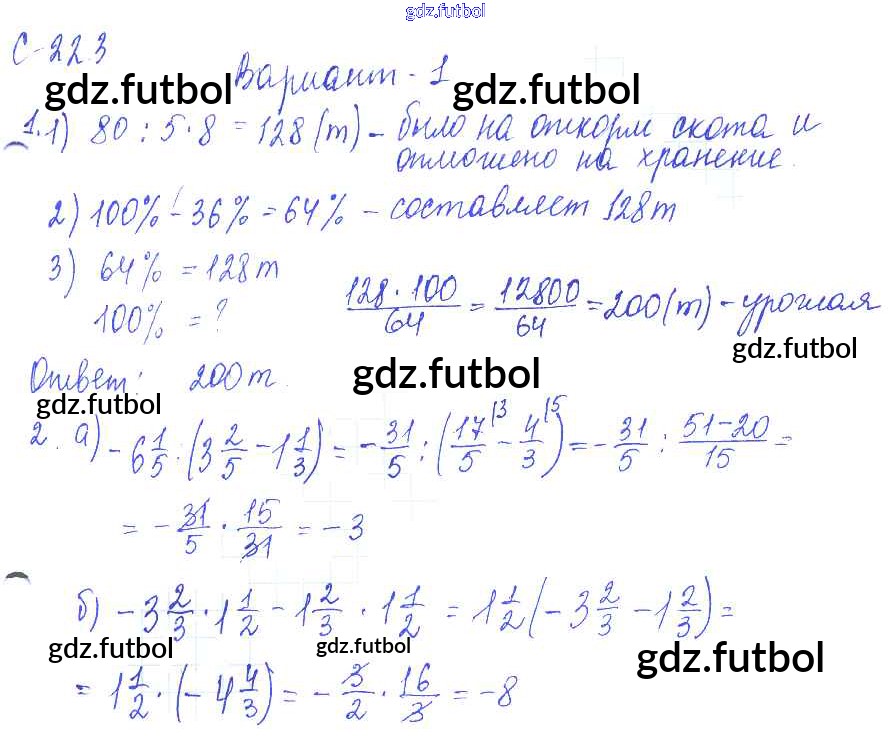 gdz.futbol
С-22.3
Вариант - 1
gdz.futbol gdz.futbol
1. 1) 80 : 5 · 8 = 128 (т) - было на откорм скота и
отпошено на хранение.
2) 100% - 36% = 64% - составляет 128т
3) 64% = 128т
100% = ? 128 · 100/64 = 12800/64 = 200 (т) - урожая
gdz.futbol
Ответ: 200т.
gdz.futbol
gdz.futbol
2. а) -6 1/5 : (3 2/5 - 1 1/3) = -31/5 : (17/5 |3 - 4/3 |5) = -31/5 : 51-20/15 =
= -31/5 · 15/31 = -3
б) -3 2/3 · 1 1/2 - 1 2/3 · 1 1/2 = 1 1/2 (-3 2/3 - 1 2/3) =
gdz.futbol gdz.futbol gdz.futbol
= 1 1/2 · (-4 4/3) = -3/2 · 16/3 = -8